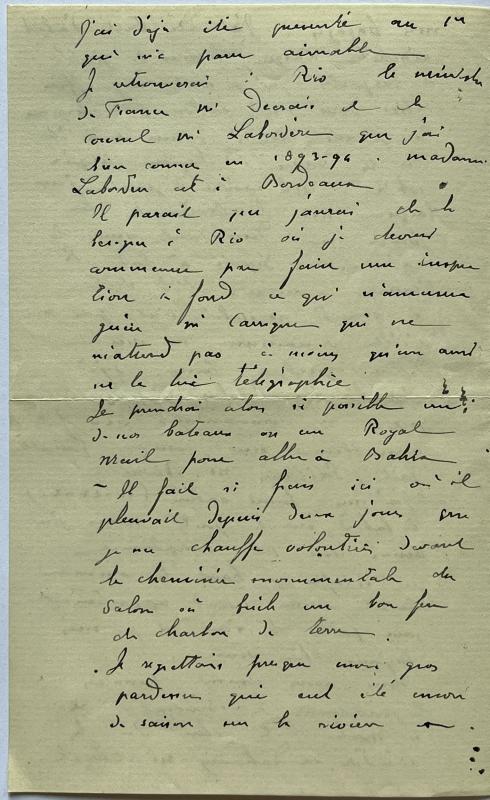 J'ai déjà été présenté au 1er
qui m'a paru aimable
Je retrouverai à Rio le ministre
de France Mr Decrais et le
consul Mr Labordère que j'ai
bien connu en 1893-94. madame
Labordère est à Bordeaux
Il parait que j'aurai de la
besogne à Rio où je devrai
commencer par faire une inspec
tion à fond ce qui n'amusera
guère Mr Carrigue qui ne
m'attend pas à moins qu'un ami
ne le lui télégraphie
Je prendrai alors si possible un
de nos bateaux ou un Royal
mail pour aller à Bahia
– Il fait si frais ici où il
pleuvait depuis deux jours que
je me chauffe volontiers devant
la cheminée monumentale du
Salon où brûle un bon feu
de charbon de terre.
Je regrettais presque mon gros
pardessus qui eut été encore
de saison sur la rivière